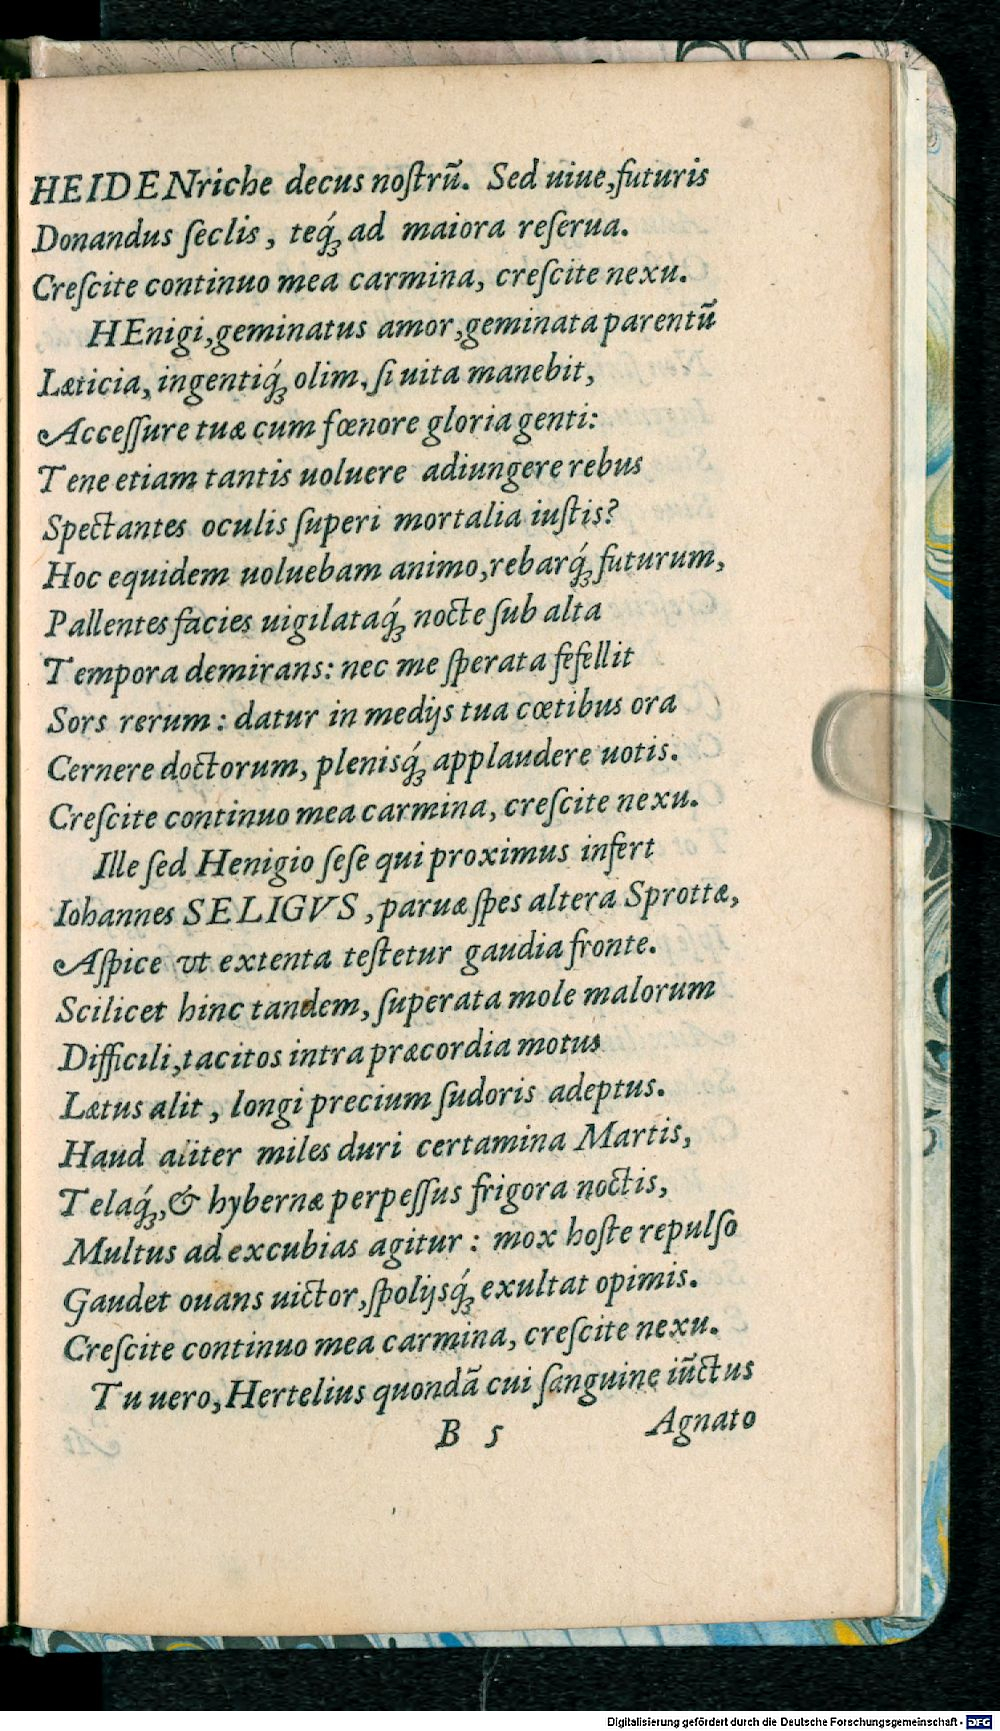 HEIDENriche decus noſtrũ. Sed uiue,futuris
Donandus ſeclis, teq́ꝫ ad maiora reſerua.
Creſcite continuo mea carmina, creſcite nexu.
HEnigi,geminatus amor,geminata parentũ
Læticia, ingentiq́ꝫ olim, ſi uita manebit,
Acceſſure tuæ cum fœnore gloria genti:
Tene etiam tantis uoluere adiungere rebus
Spectantes oculis ſuperi mortalia iuſtis?
Hoc equidem uoluebam animo,rebarq́ꝫ futurum,
Pallentes facies uigilataq́ꝫ nocte ſub alta
Tempora demirans: nec me ſperata fefellit
Sors rerum: datur in medijs tua cœtibus ora
Cernere doctorum, plenisq́ꝫ applaudere uotis.
Creſcite continuo mea carmina, creſcite nexu.
Ille ſed Henigio ſeſe qui proximus infert
Iohannes SELIGVS, paruæ ſpes altera Sprottæ,
Aſpice vt extenta teſtetur gaudia fronte.
Scilicet hinc tandem, ſuperata mole malorum
Difficili,tacitos intra præcordia motus
Lætus alit, longi precium ſudoris adeptus.
Haud aliter miles duri certamina Martis,
Telaq́ꝫ,& hybernæ perpeſſus frigora noctis,
Multus ad excubias agitur: mox hoſte repulſo
Gaudet ouans uictor,ſpolijsq́ꝫ exultat opimis.
Creſcite continuo mea carmina, creſcite nexu.
Tu uero,Hertelius quondã cui ſanguine iũctus
B 5 Agnato
Digitalisierung gefördert durch die Deutsche Forschungsgemeinschaft - DFG